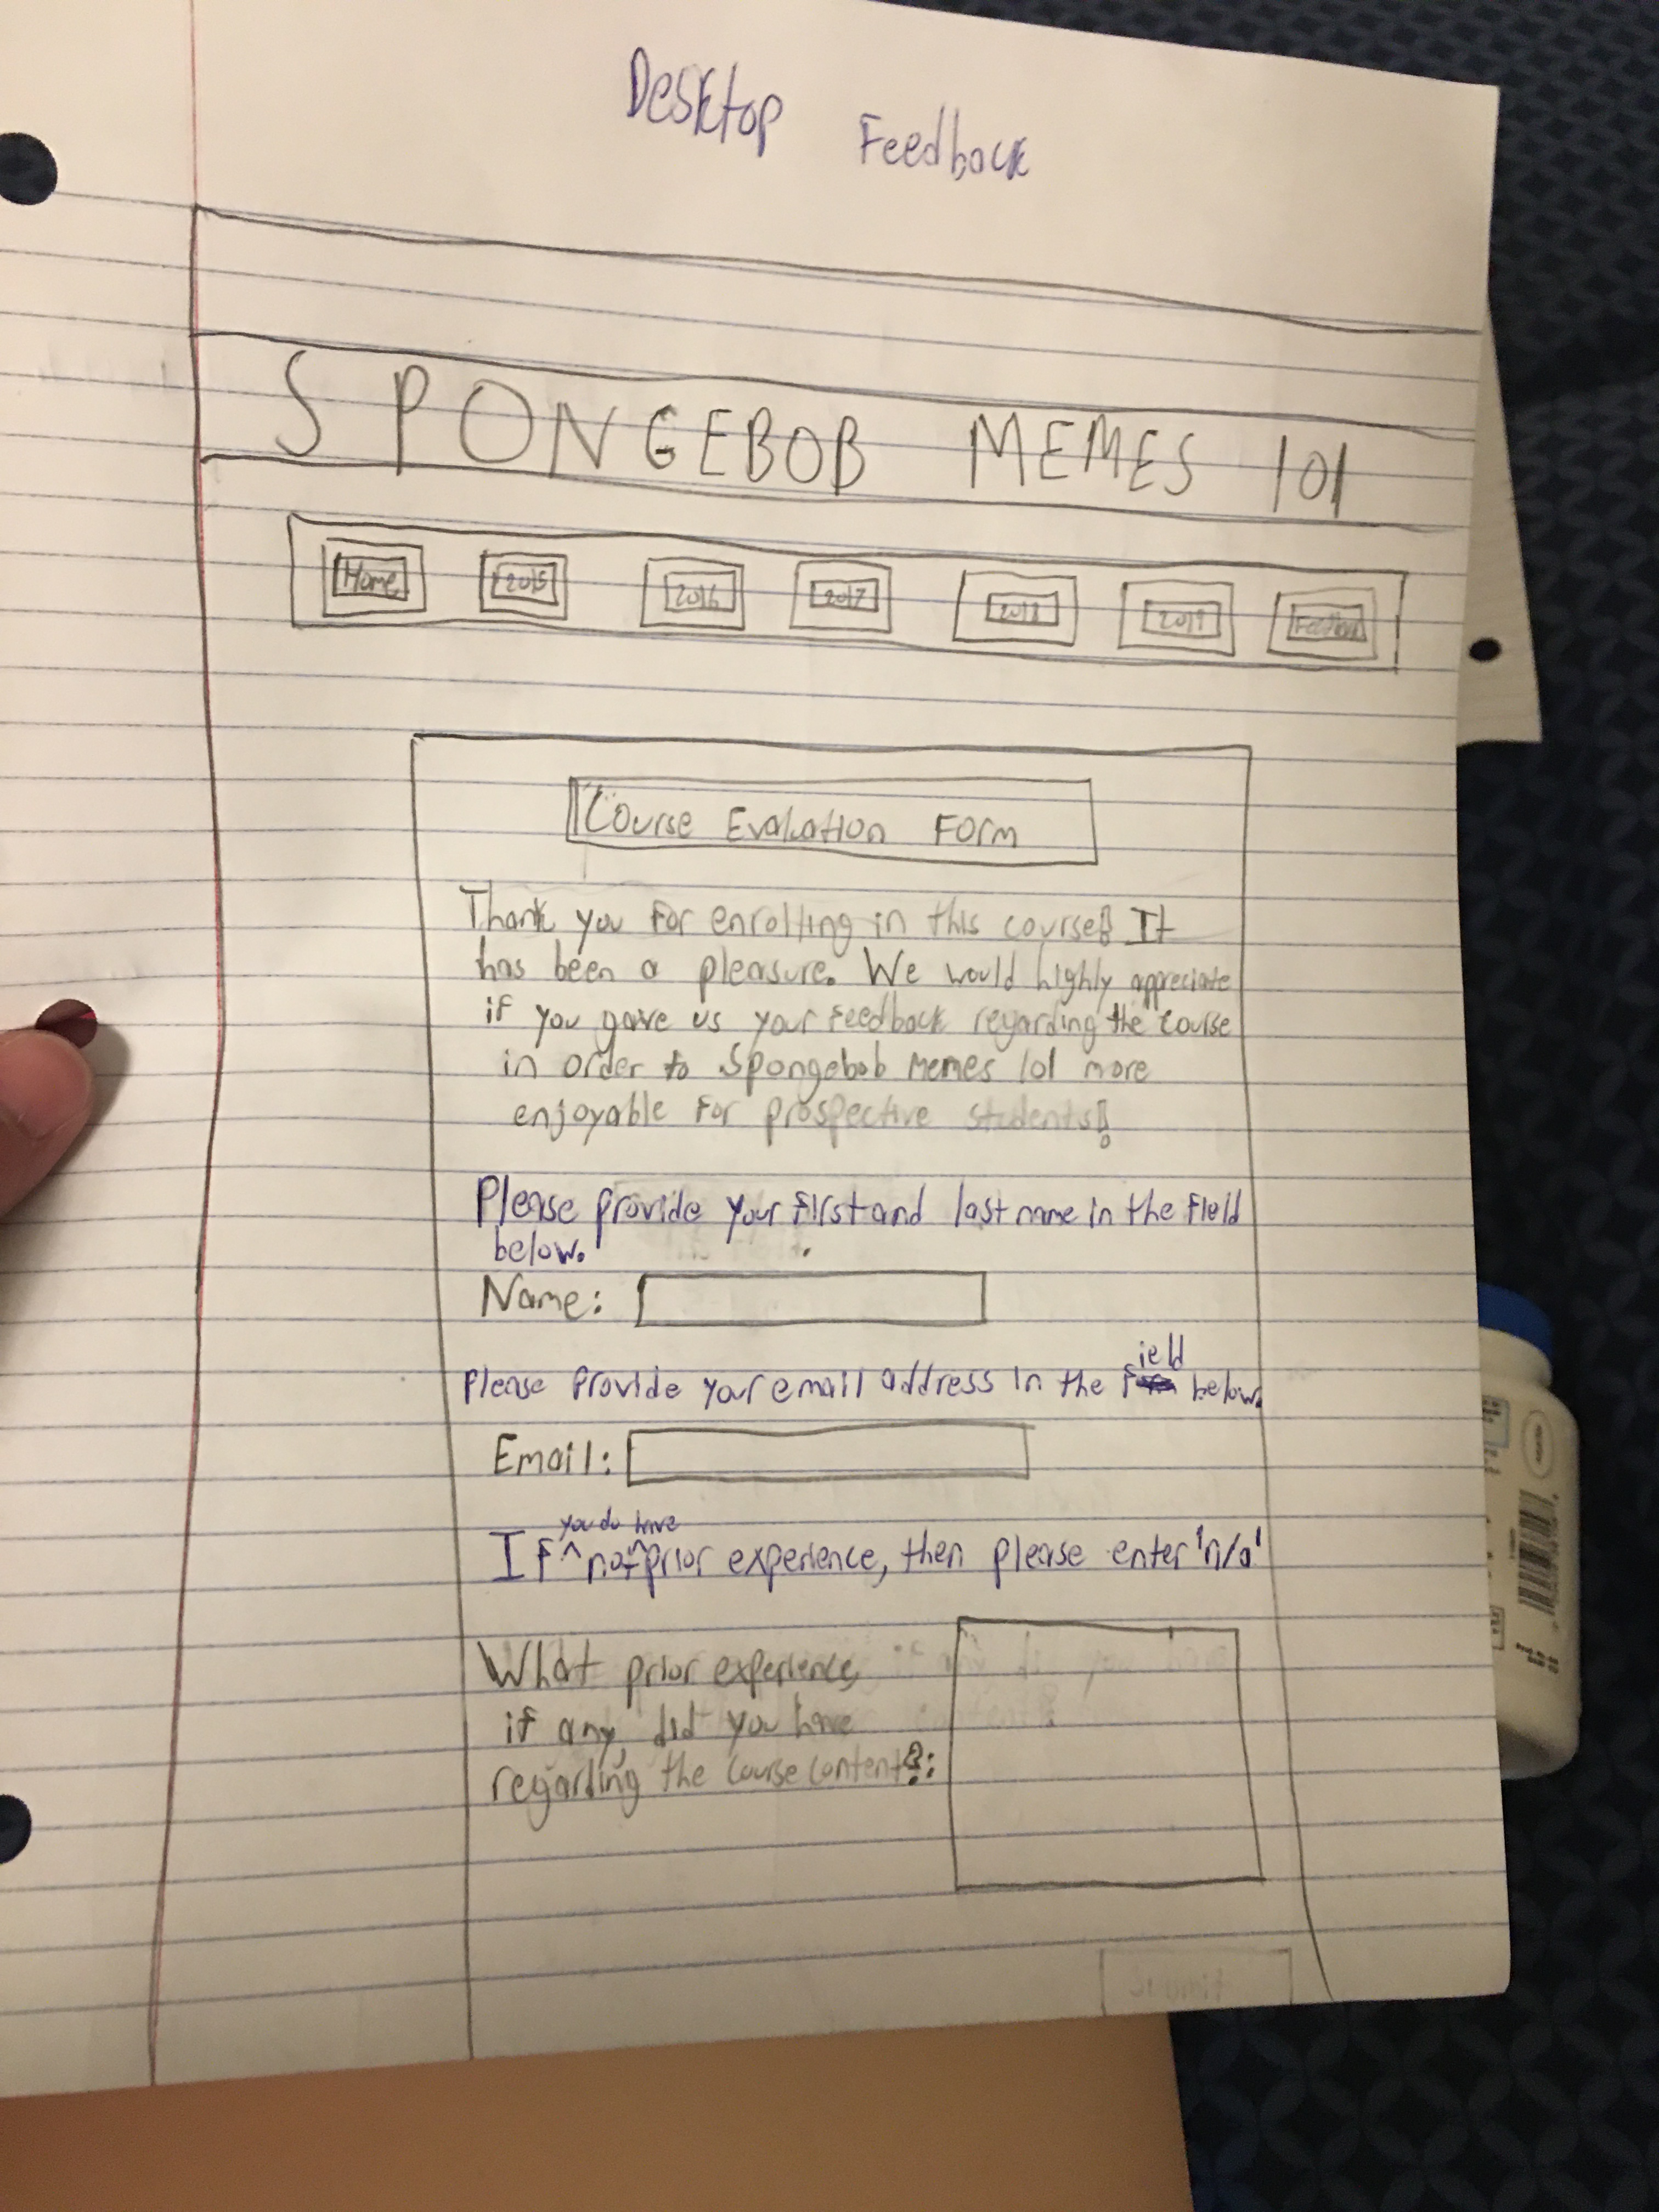 Desktop Feedback
SPONGEBOB MEMES 101
Home 2015 2016 2017 2018 2019 Feedback
Course Evaluation Form
Thank you for enrolling in this course! It
has been a pleasure. We would highly appreciate
if you gave us your feedback regarding the course
in order to Spongebob Memes 101 more
enjoyable for prospective students!
Please provide your first and last name in the field
below.
Name:
Please provide your email address in the field below.
Email:
If you do not have prior experience, then please enter 'n/a'
What prior experience,
if any, did you have
regarding the course content?:
Submit